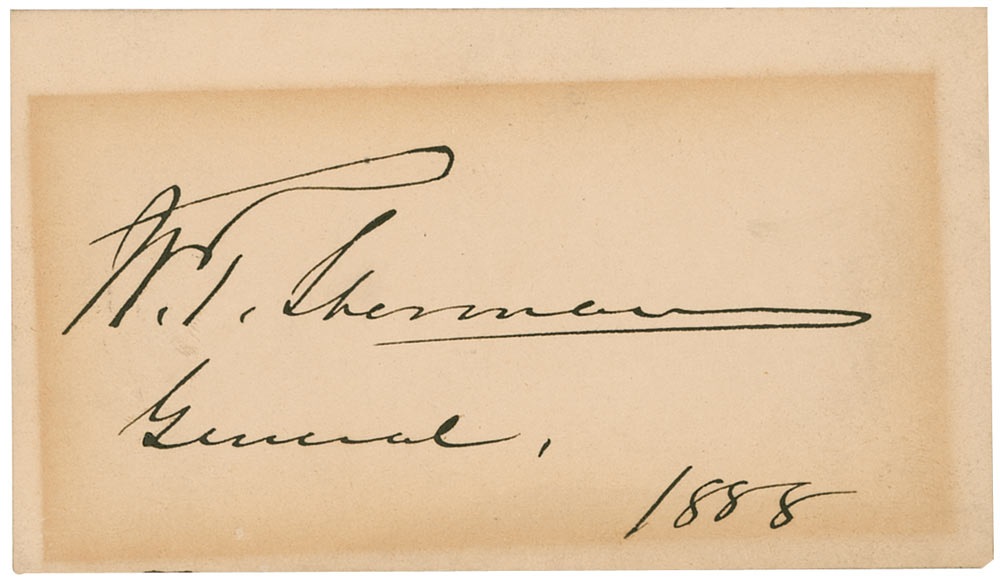 W. T. Sherman
General,
1888